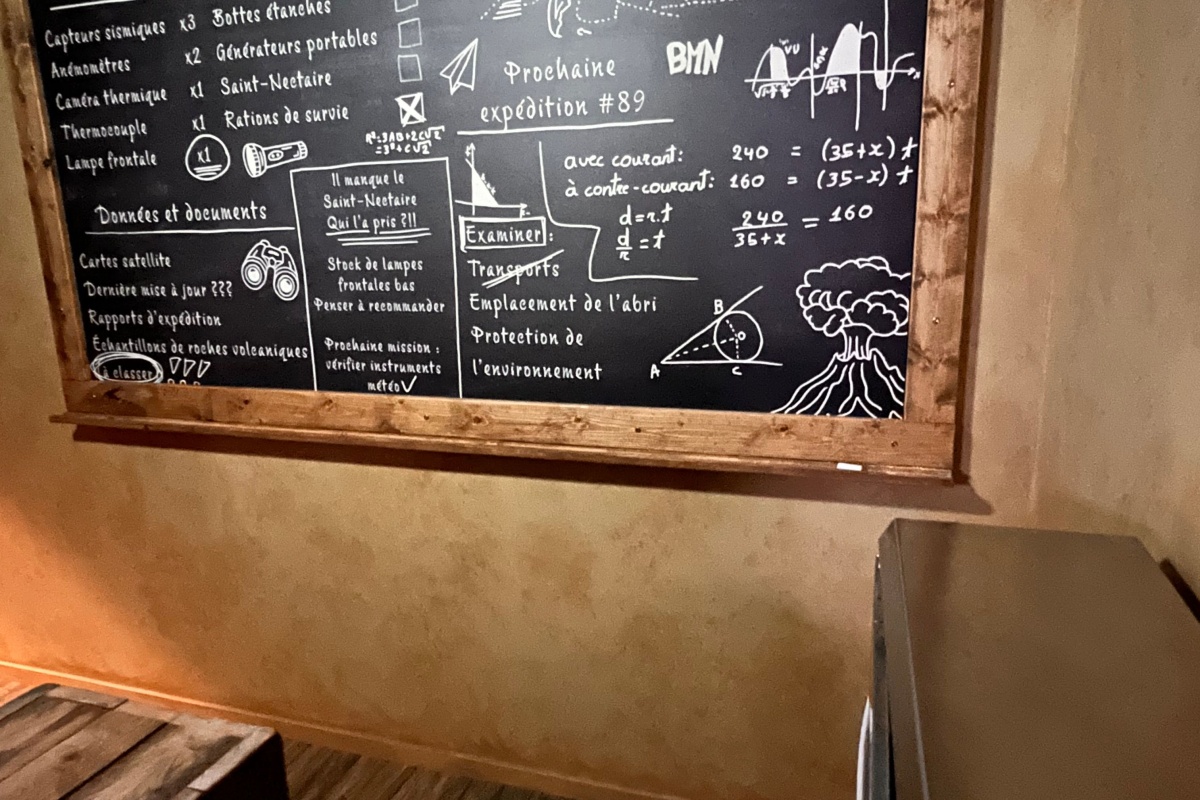 Capteurs sismiques x3
Anémomètres x2
Caméra thermique x1
Thermocouple x1
Lampe frontale x1
Bottes étanches
Générateurs portables
Saint-Nectaire
Rations de survie
Données et documents
Cartes satellite
Dernière mise à jour ???
Rapports d'expédition
Échantillons de roches volcaniques
à classer
Il manque le
Saint-Nectaire
Qui l'a pris ?!!
Stock de lampes
frontales bas
Penser à recommander
Prochaine mission :
vérifier instruments
météo
Prochaine
expédition #89
BMN
Examiner :
Transports
Emplacement de l'abri
Protection de
l'environnement
avec courant: 240 = (35+x) t
à contre-courant: 160 = (35-x) t
d=r.t
d/r = t
240/35+x = 160
A
B
C
O